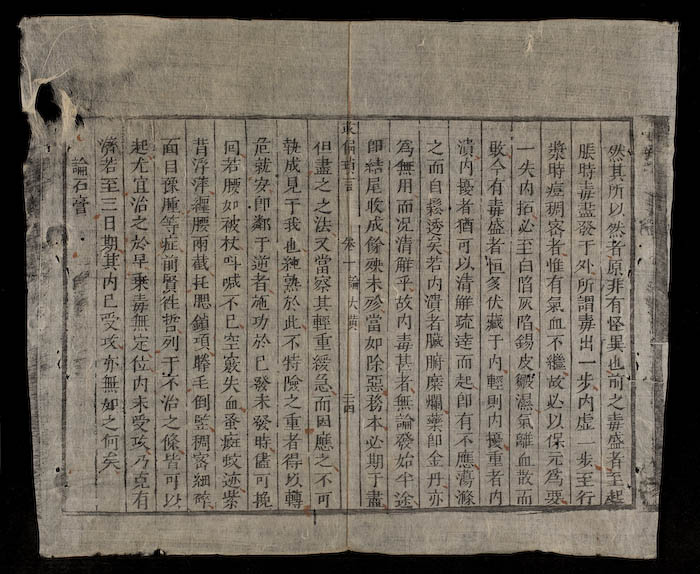 然其所以然者原非有怪異也前之毒盛者至起
脹時毒盡發于外所謂毒出一步內虛一步至行
漿時痘稠密者惟有氣血不繼故必以保元為要
一失內拓必至白陷灰陷錫皮皺濕氣離血散而
敗今有毒盛者恒多伏藏于內輕則內擾重者內
潰內擾者猶可以清解疏達而起即有不應蕩滌
之而自鬆透矣若內潰者臟腑糜爛藥即金丹亦
為無用而况清解乎故內毒甚者無論發始半途
即結尾收成餘殃未殄當如除惡務本必期于盡
救偏瑣言 卷一 論大黃 三四
但盡之之法又當察其輕重緩急而因應之不可
執成見于我也純熟於此不特險之重者得以轉
危就安即鄰于逆者施功於已發未發時儘可挽
回若腰如被杖呌喊不已空竅失血蚤癍蚊迹紫
背浮萍纏腰兩截托腮鎖項鬈毛倒竪稠密細碎
面目豫腫等症前賢徃哲列于不治之條皆可以
起尤宜治之於早乘毒無定位內未受攻乃克有
濟若至三日期其內已受攻亦無如之何矣
論石膏